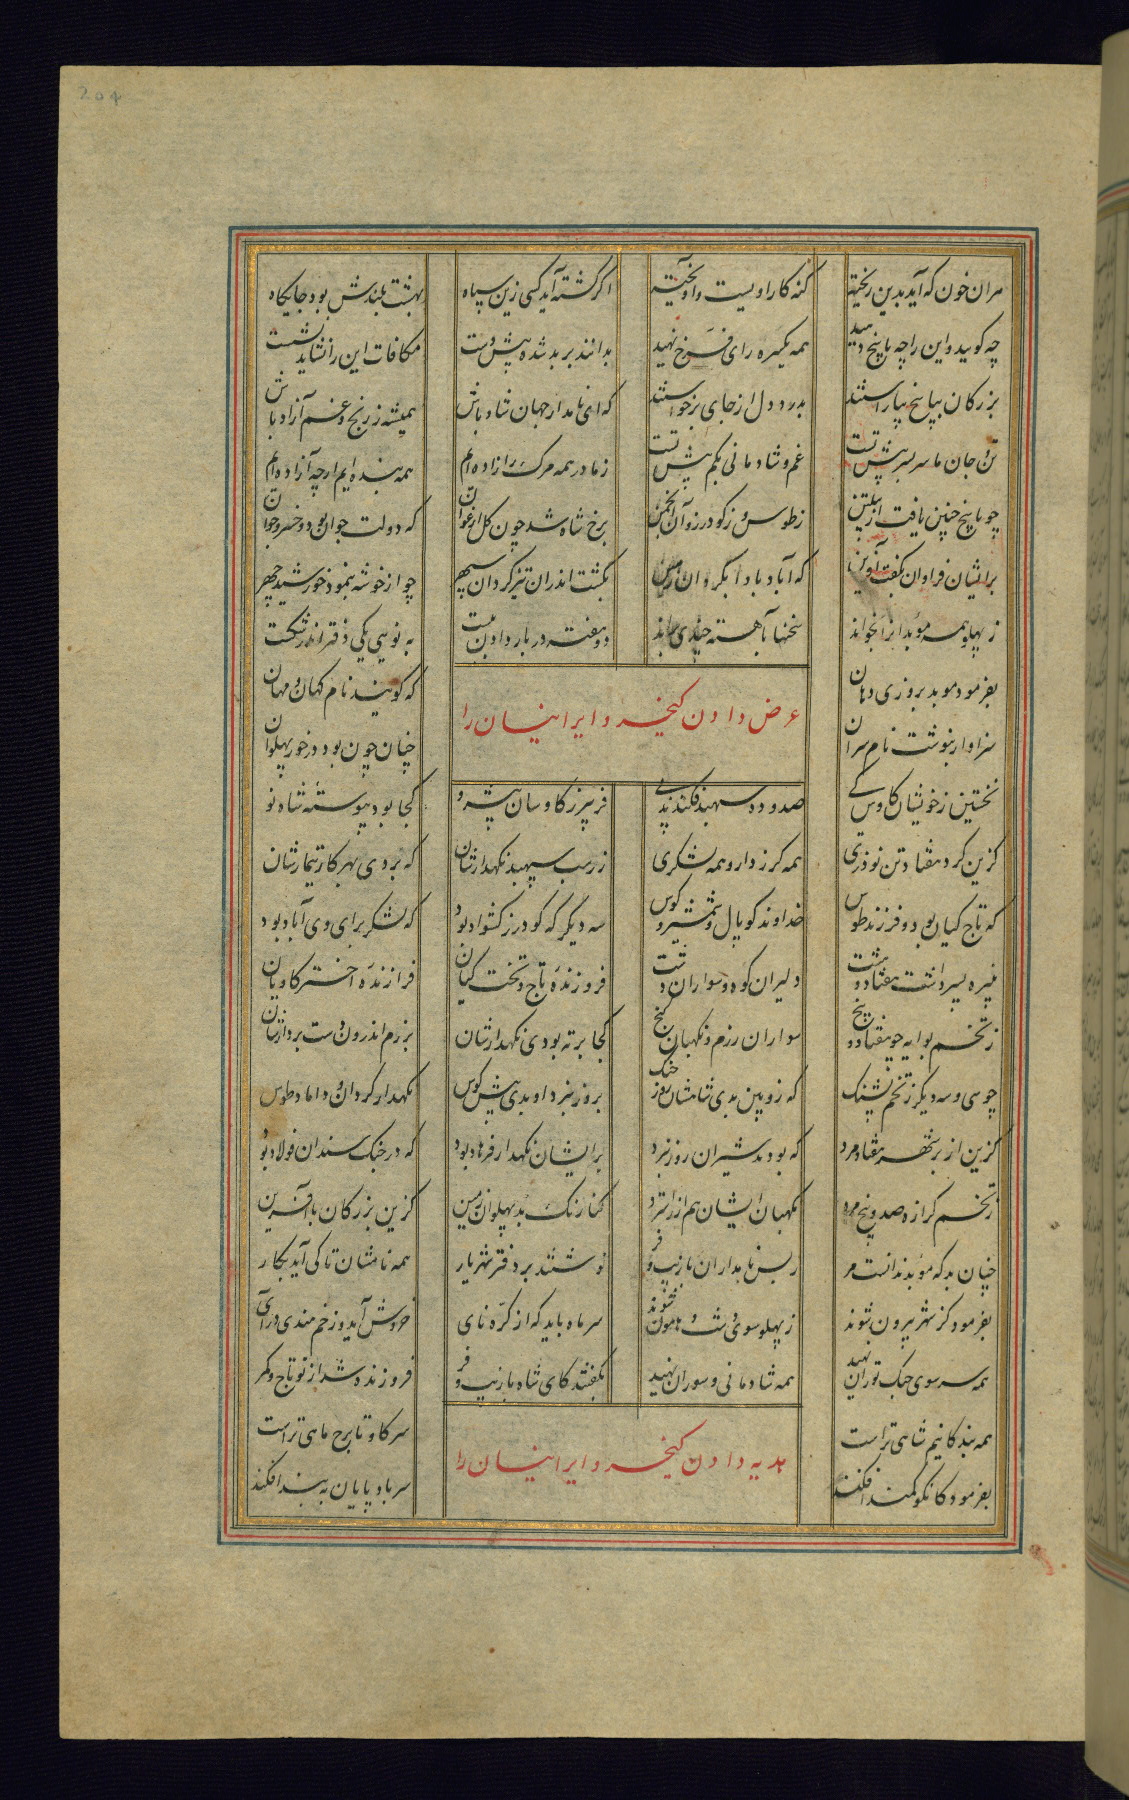 مران خون که آید بدین ریخته گنه کار اویست و آویخته اگر کشته آید کسی زین سپاه بهشت بلندش بود جایگاه
چه گویید و این را چه پاسخ دهید همه یکسره رای فرخ نهید بدانند بر بد شده پیش دست مکافات این را نشاید نشست
بزرگان بپاسخ بیاراستند بدرد دل از جای برخواستند که ای نامدار جهان شاد باش همیشه ز رنج و غم آزاد باش
تن و جان ما سربسر پیش تست غم و شادمانی بکم بیش تست ز مادر همه مرگ را زاده ایم همه بنده ایم ارچه آزاده ایم
چو پاسخ چنین یافت از پیلتن ز طوس و ز گودرز و آن انجمن برخ شاه شد چون گل ارغوان که دولت جوان بود و خسرو جوان
برایشان فراوان بگفت آفرین که آباد بادا بگردان زمین بگشت اندران تیز گردان سپهر چو از خوشه بنمود خورشید چهر
ز پهلو همه مؤبدانرا بخواند سخنها بآهسته چندی براند دو هفته در بار دادن ببست به نویی یکی دفتر اندر شکست
بفرمود موبد بروزی دهان که گویند نام کهان و مهان
عرض دادن کیخسرو ایرانیان را
سزاوار بنوشت نام سران چنان چون بود در خور پهلوان
نخستین ز خویشان کاوس کی صد و ده سپهبد فکندند پی فریبرز کاوسشان پیش رو کجا بود پیوسته شاه نو
گزین کرد هفتاد تن نوذری همه گرزدار و همه لشکری زرسب سپهبد نگهدارشان که بردی بهر کار تیمارشان
که تاج کیان بود و فرزند طوس خداوند کوپال و شمشیر و کوس سه دیگر که گودرز کشواد بود که لشکر برای وی آباد بود
نبیره پسر داشت هفتاد و هشت دلیران کوه و سواران دشت فروزنده تاج و تخت کیان فرازنده اختر کاویان
ز تخم لوابه چو هفتاد و پنج سواران رزم و نگهبان گنج کجا برته بودی نگهدارشان برزم اندرون دست بردارشان
چو سی و سه دیگر ز تخم پشنگ که زوپین بدی شاهشان روز جنگ بروز نبرد او بدی پیش کوس نگهدار گردان و داماد طوس
گزین از برتفر هفتاد مرد که بودند شیران روز نبرد برایشان نگهدار فرهاد بود که در جنگ سندان فولاد بود
ز تخم گرازه صد و پنج مرد نگهبان ایشان هم او را سپرد کنارنگ بد پهلوان زمین گزین بزرگان باآفرین
چنان بد که مؤبد ندانست مر ز بس نامداران با زیب و فر نوشتند بر دفتر شهریار همه نامشان تا کی آید بکار
بفرمود کز شهر بیرون شوند ز پهلو سوی دشت و هامون شوند سر ماه باید که از کره نای خروش آید و زخم هندی درای
همه سر سوی جنگ توران نهید همه شادمانی و سوران نهید بگفتند کای شاه با زیب و فر فروزنده شد از تو تاج و کمر
همه بندگانیم شاهی تراست سر گاو تا برج ماهی تراست
هدیه دادن کیخسرو ایرانیان را
بفرمود کانکو کمند افکند سر بادپایان به بند افکند
204